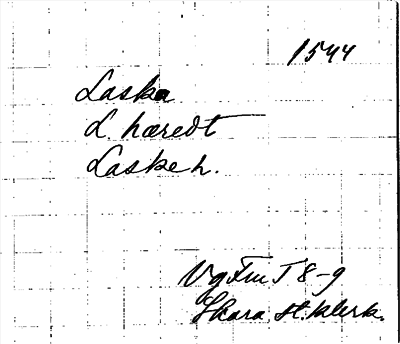 1544
Laska
L. hæredt
Laskeh.
VgFmT 8-9
Skara st. klerk.